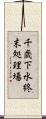 千歳下水終
末処理場